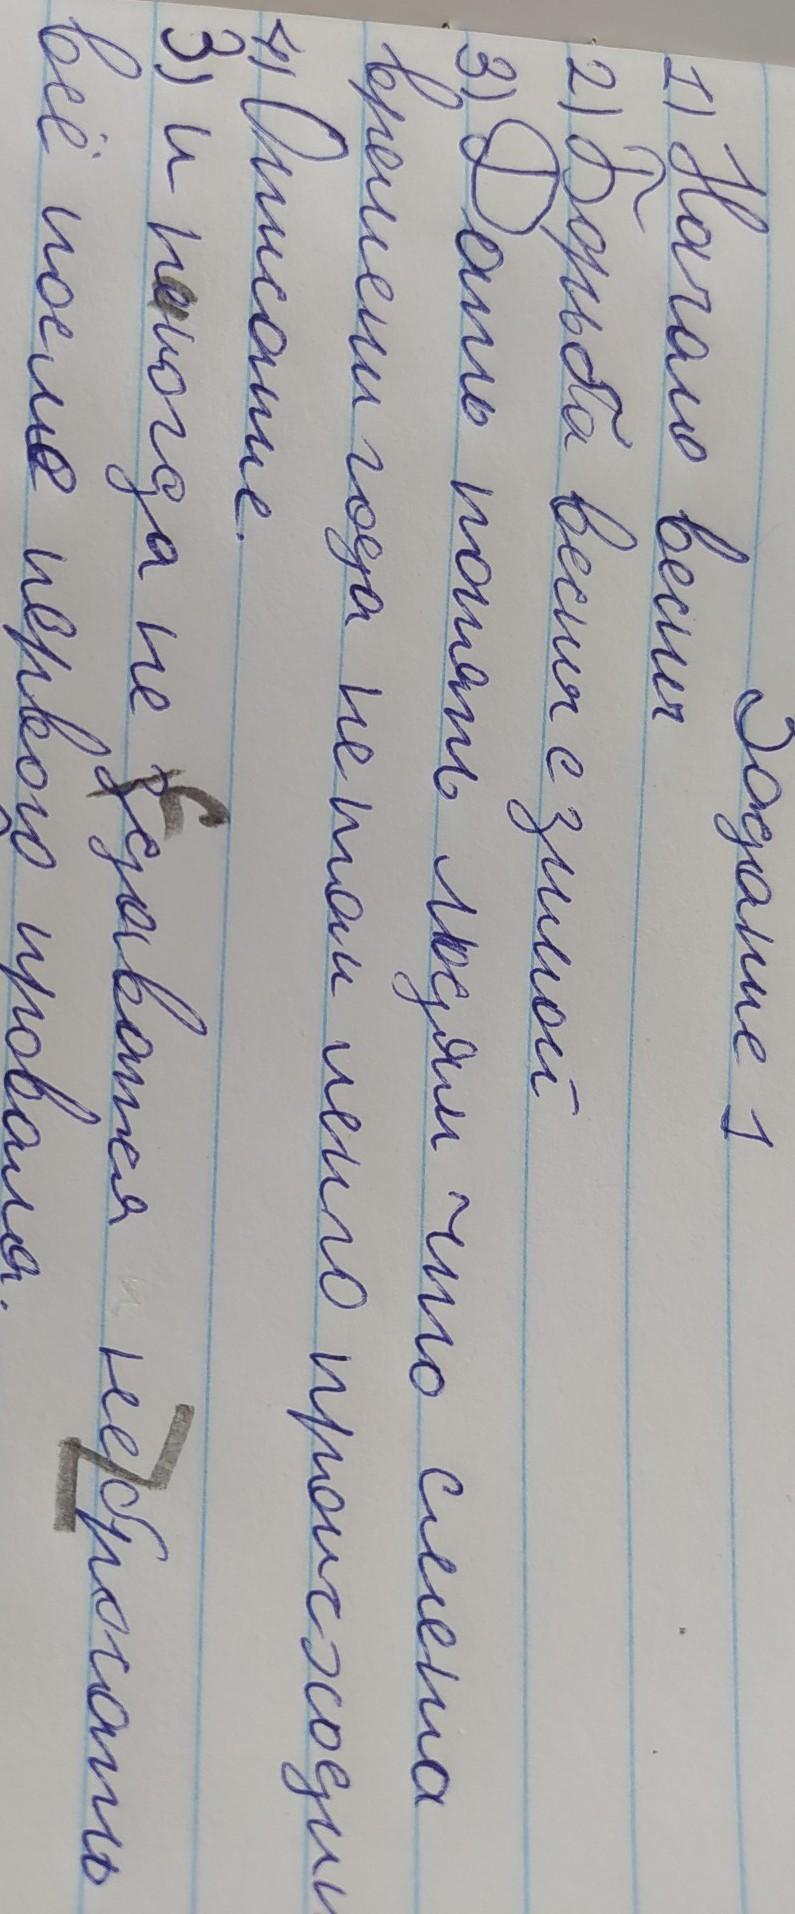 Задание 1
1) Начало весны
2) Борьба весны с зимой
3) Дать понять людям что смена
времени года не так легко происходит
4) Описание.
3) и никогда не сдаватся не бросать
всё после первого провала.